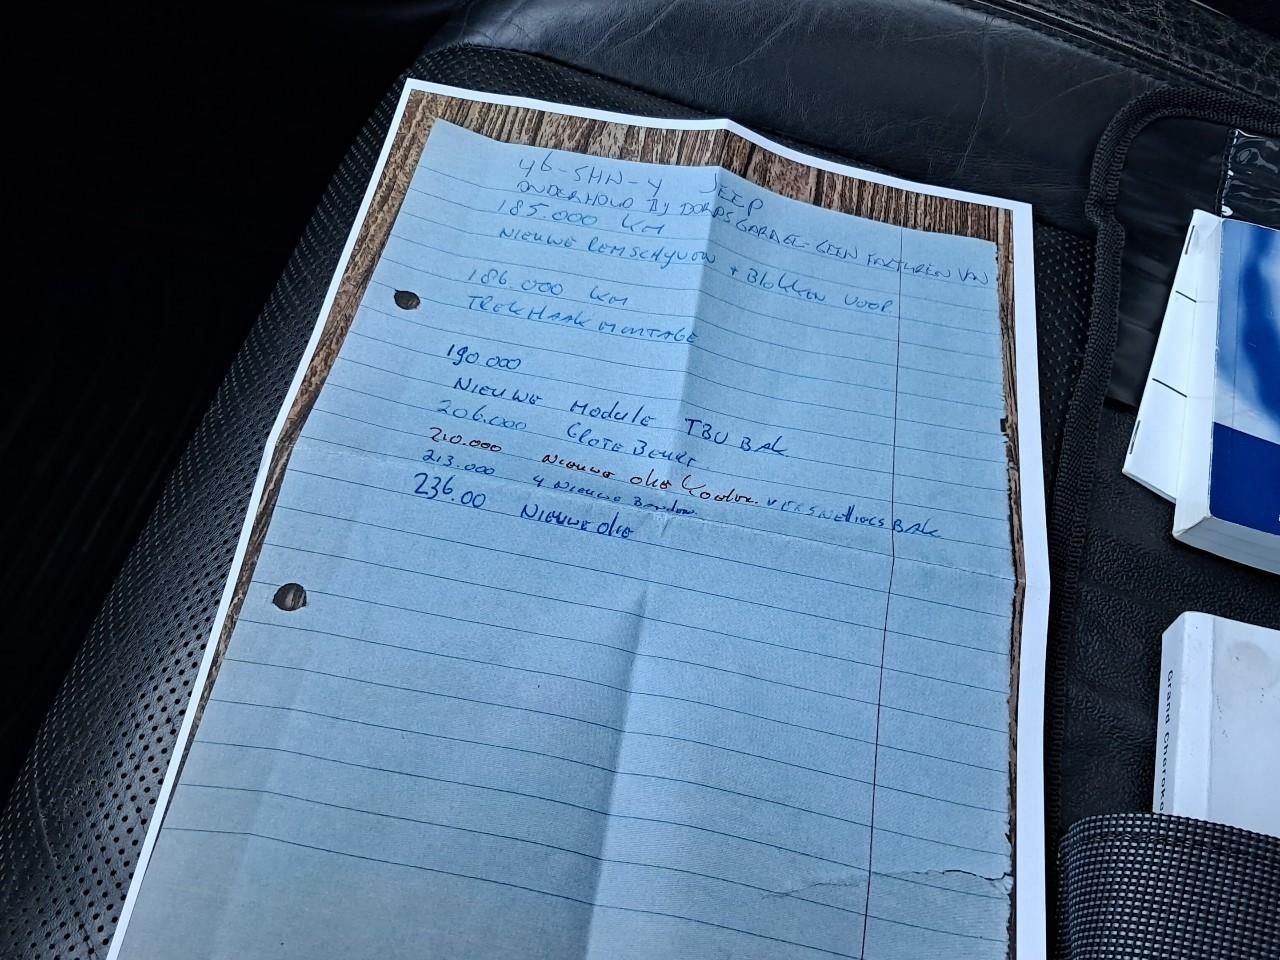 46-SHN-4 JEEP
ONDERHOUD By DORPSGARAGE-GEEN FAKTUREN VAN
185.000 KM
NIEUWE REMSCHYVEN + BLOKKEN VOOR
186.000 KM
TREKHAAK MONTAGE
190.000
NIEUWE MODULE TBV BAK
206.000 GROTE BEURT.
210.000 NIEUWE olie Koeler. VERSNELLINGSBAK
213.000 4 NIEUWE Banden
236.00 NIEUWE olie
Grand Cheroke